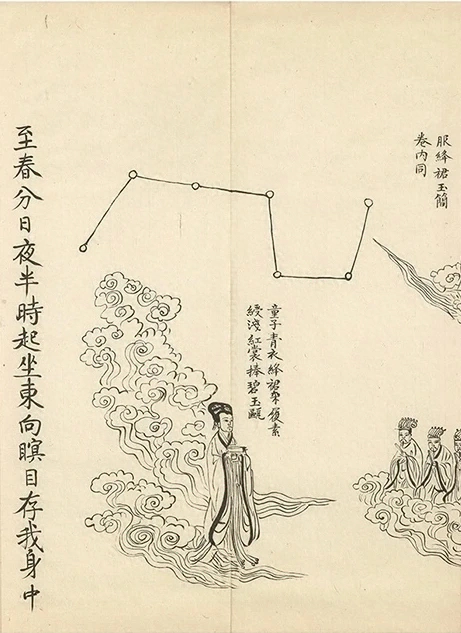 服絳裙玉簡
卷内同
童子青衣絳裙朱履素
綬淺紅裳捧碧玉甌
至春分日夜半時起坐東向瞑目存我身中